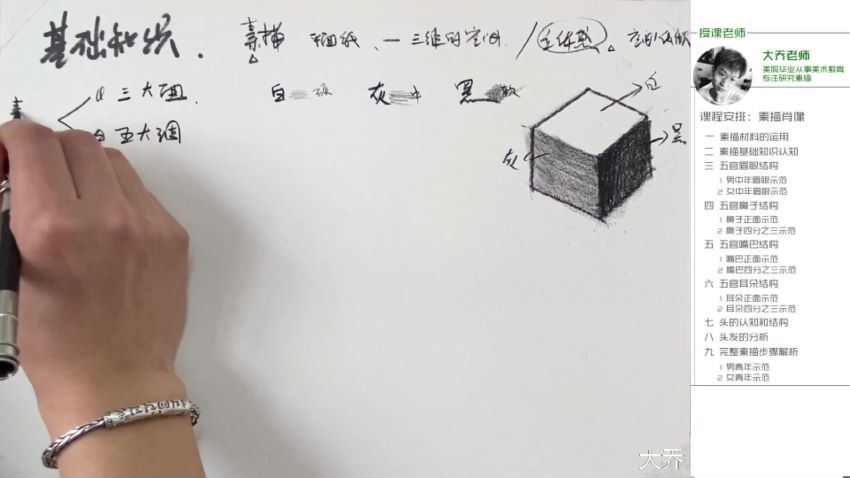 基础知识.
素描 平面纸、一三维的空间. 立体感 空间
① 三大面.
白 灰 黑
② 五大调
白
黑
灰
授课老师
大乔老师
美院毕业从事美术教育
专注研究素描
课程安排：素描肖像
一 素描材料的运用
二 素描基础知识认知
三 五官眉眼结构
1 男中年眉眼示范
2 女中年眉眼示范
四 五官鼻子结构
1 鼻子正面示范
2 鼻子四分之三示范
五 五官嘴巴结构
1 嘴巴正面示范
2 嘴巴四分之三示范
六 五官耳朵结构
1 耳朵正面示范
2 耳朵四分之三示范
七 头的认知和结构
八 头发的分析
九 完整素描步骤解析
1 男青年示范
2 女青年示范
大乔